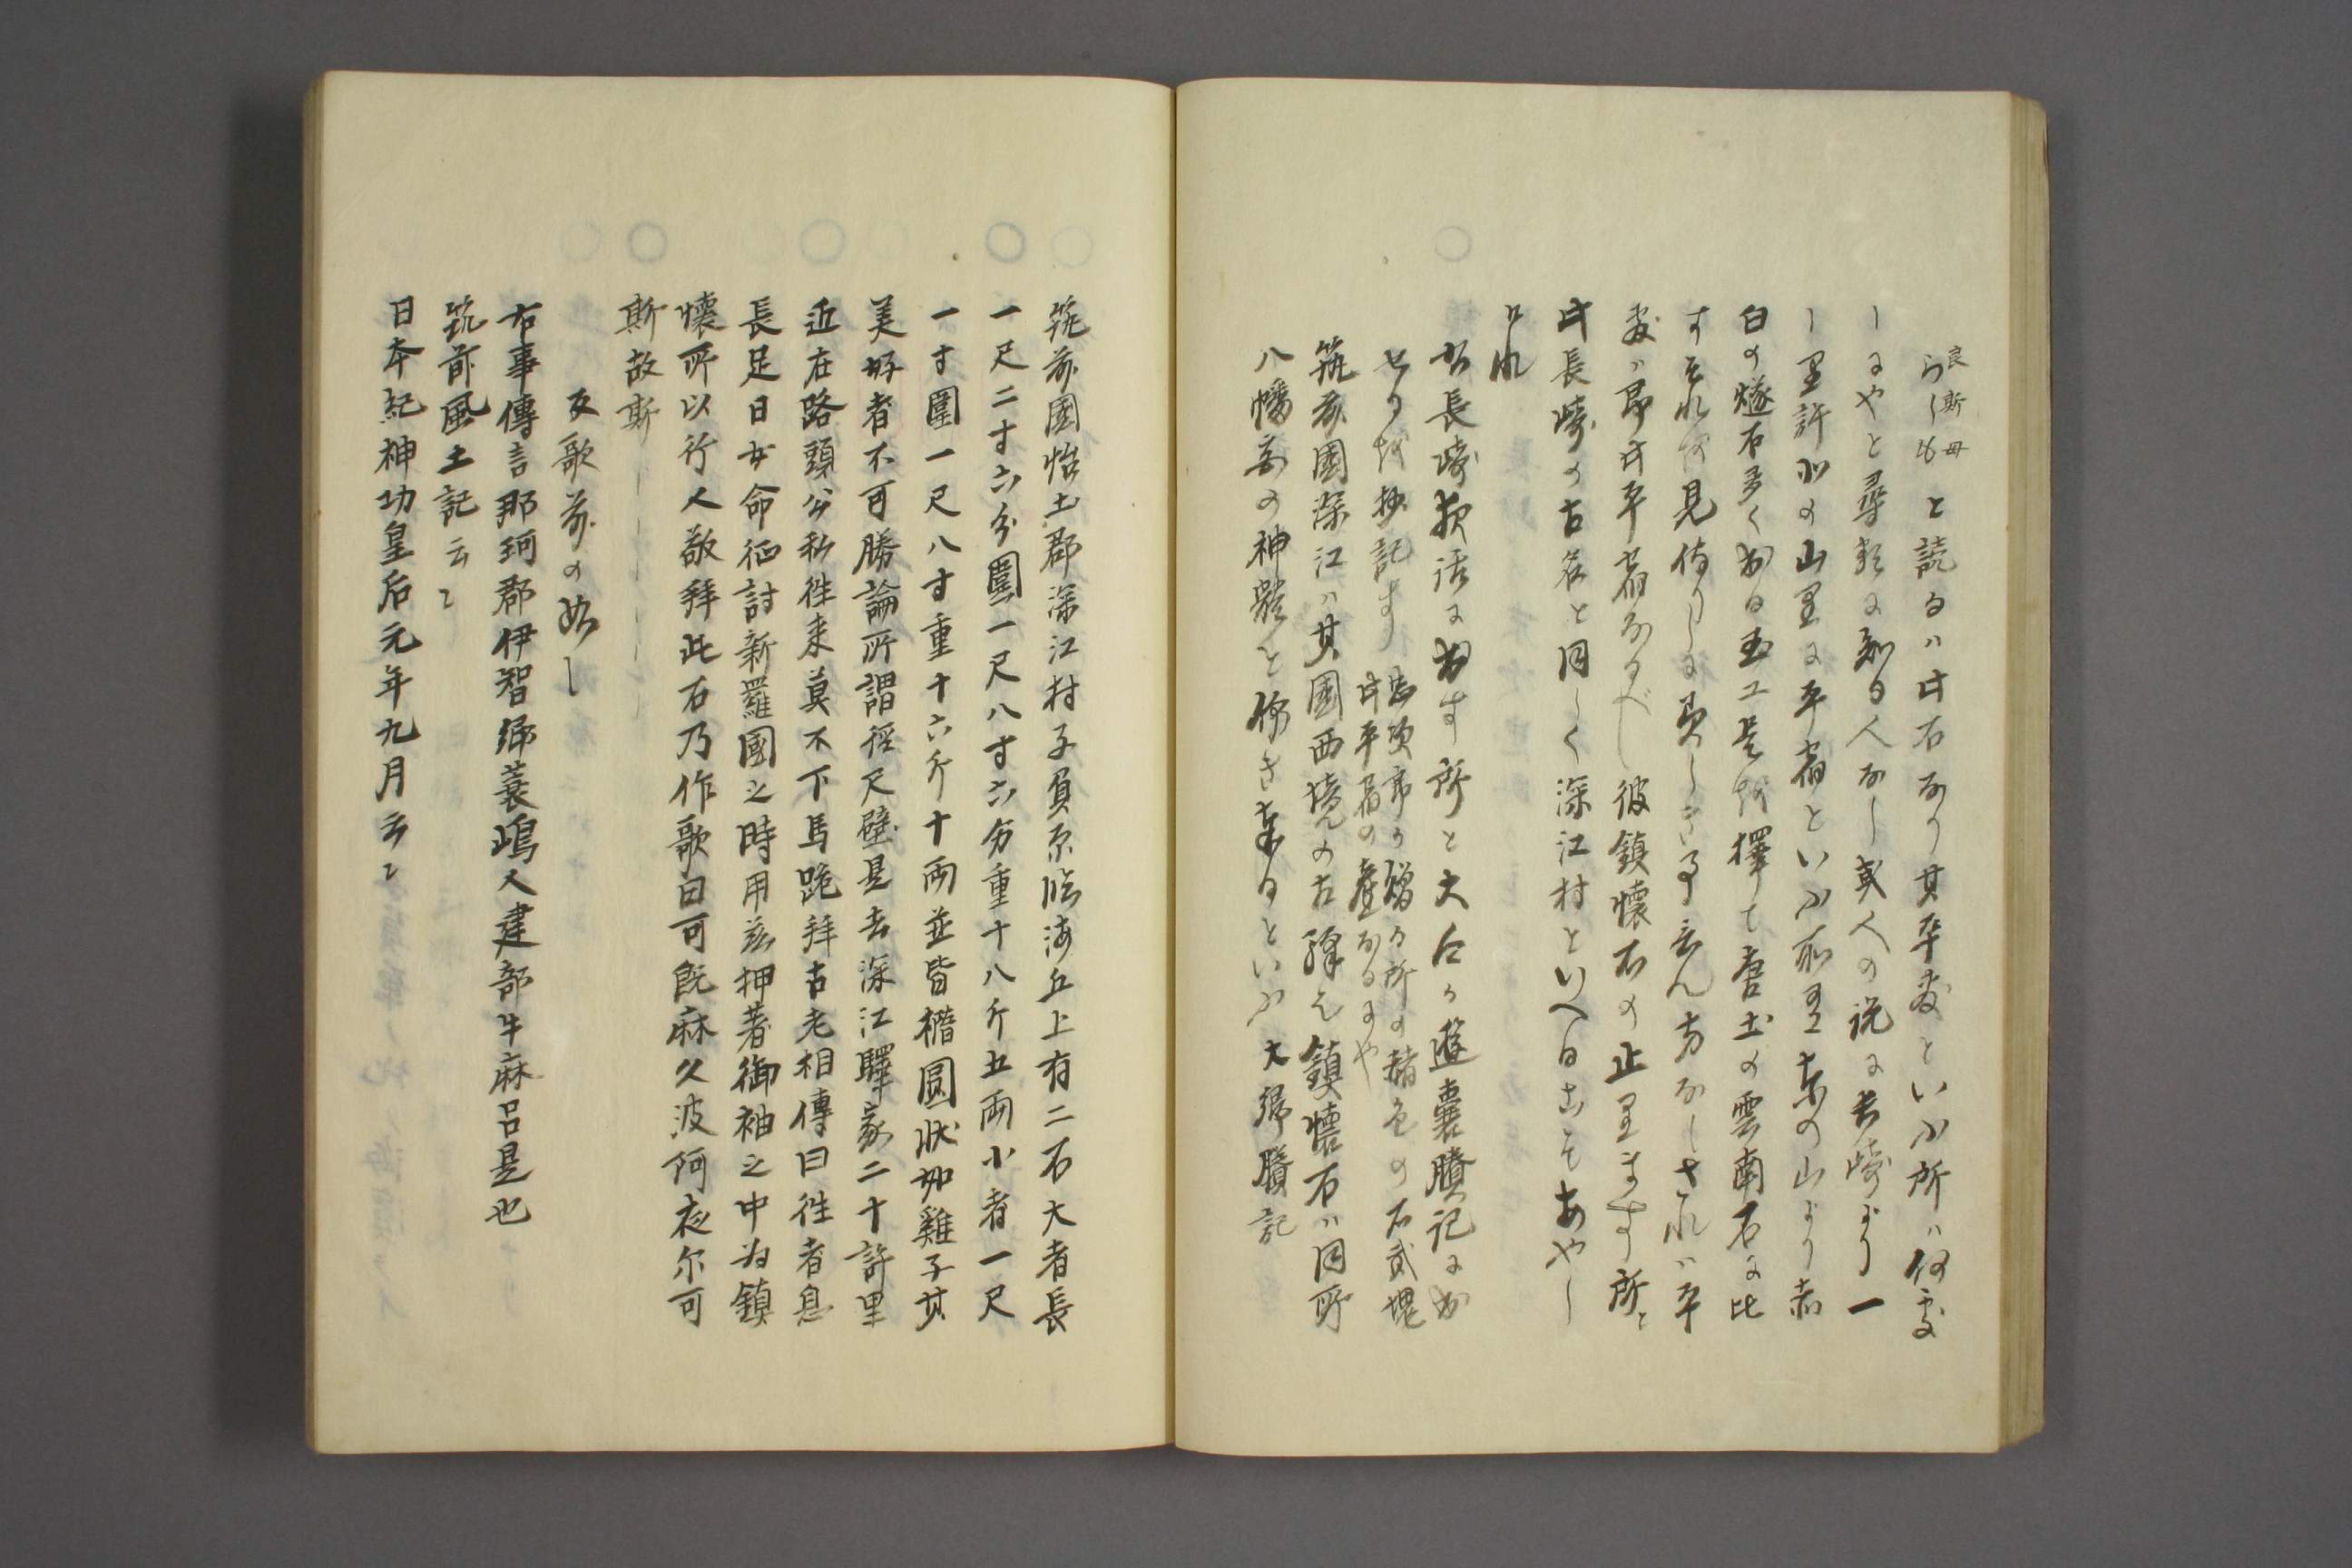 良斯母
らしも と読るハ此石なり其平敷といふ所ハ何處
にやと尋ぬるに知る人なし或人の説に長崎より一
一里許北の山里に平宿といふ所有東の山より赤
白の燧石多く出る玉工是を擇て唐土の雲南石に比
すそれを見侍りしに美しき事言ん方なしされハ平
敷ハ即此平宿なるべし彼鎮懐石の止里ます所と
此長崎の古名と同しく深江村といへるこそあやし
けれ
右長崎夜話に出す所と大八の遊嚢賸記に出
せるを抄記す
此平宿の産なるにや
筑前國深江ハ其國西境の古驛也鎮懐石ハ同所
八幡宮の神體と傳き奉るといふ 大 賸記
筑前國怡土郡深江村子負原臨海丘上有二石大者長
一尺二寸六分圍一尺八寸六分重十八斤五両小者一尺
一寸圍一尺八寸重十六斤十両並皆楕圓状如雞子其
美好者不可勝論所謂径尺璧是去深江驛家二十許里
近在路頭公私往来莫不下馬跪拜古老相傳曰往者息
長足日女命征討新羅國之時用茲押著御袖之中為鎮
懐所以行人敬拜此石乃作歌曰可既麻久波阿夜尓可
斯故斯ーーー
反歌前の如し
右事傳言那珂郡伊智郷蓑嶋人建部牛麻呂是也
筑前風土記云〻
日本紀神功皇后元年九月云〻